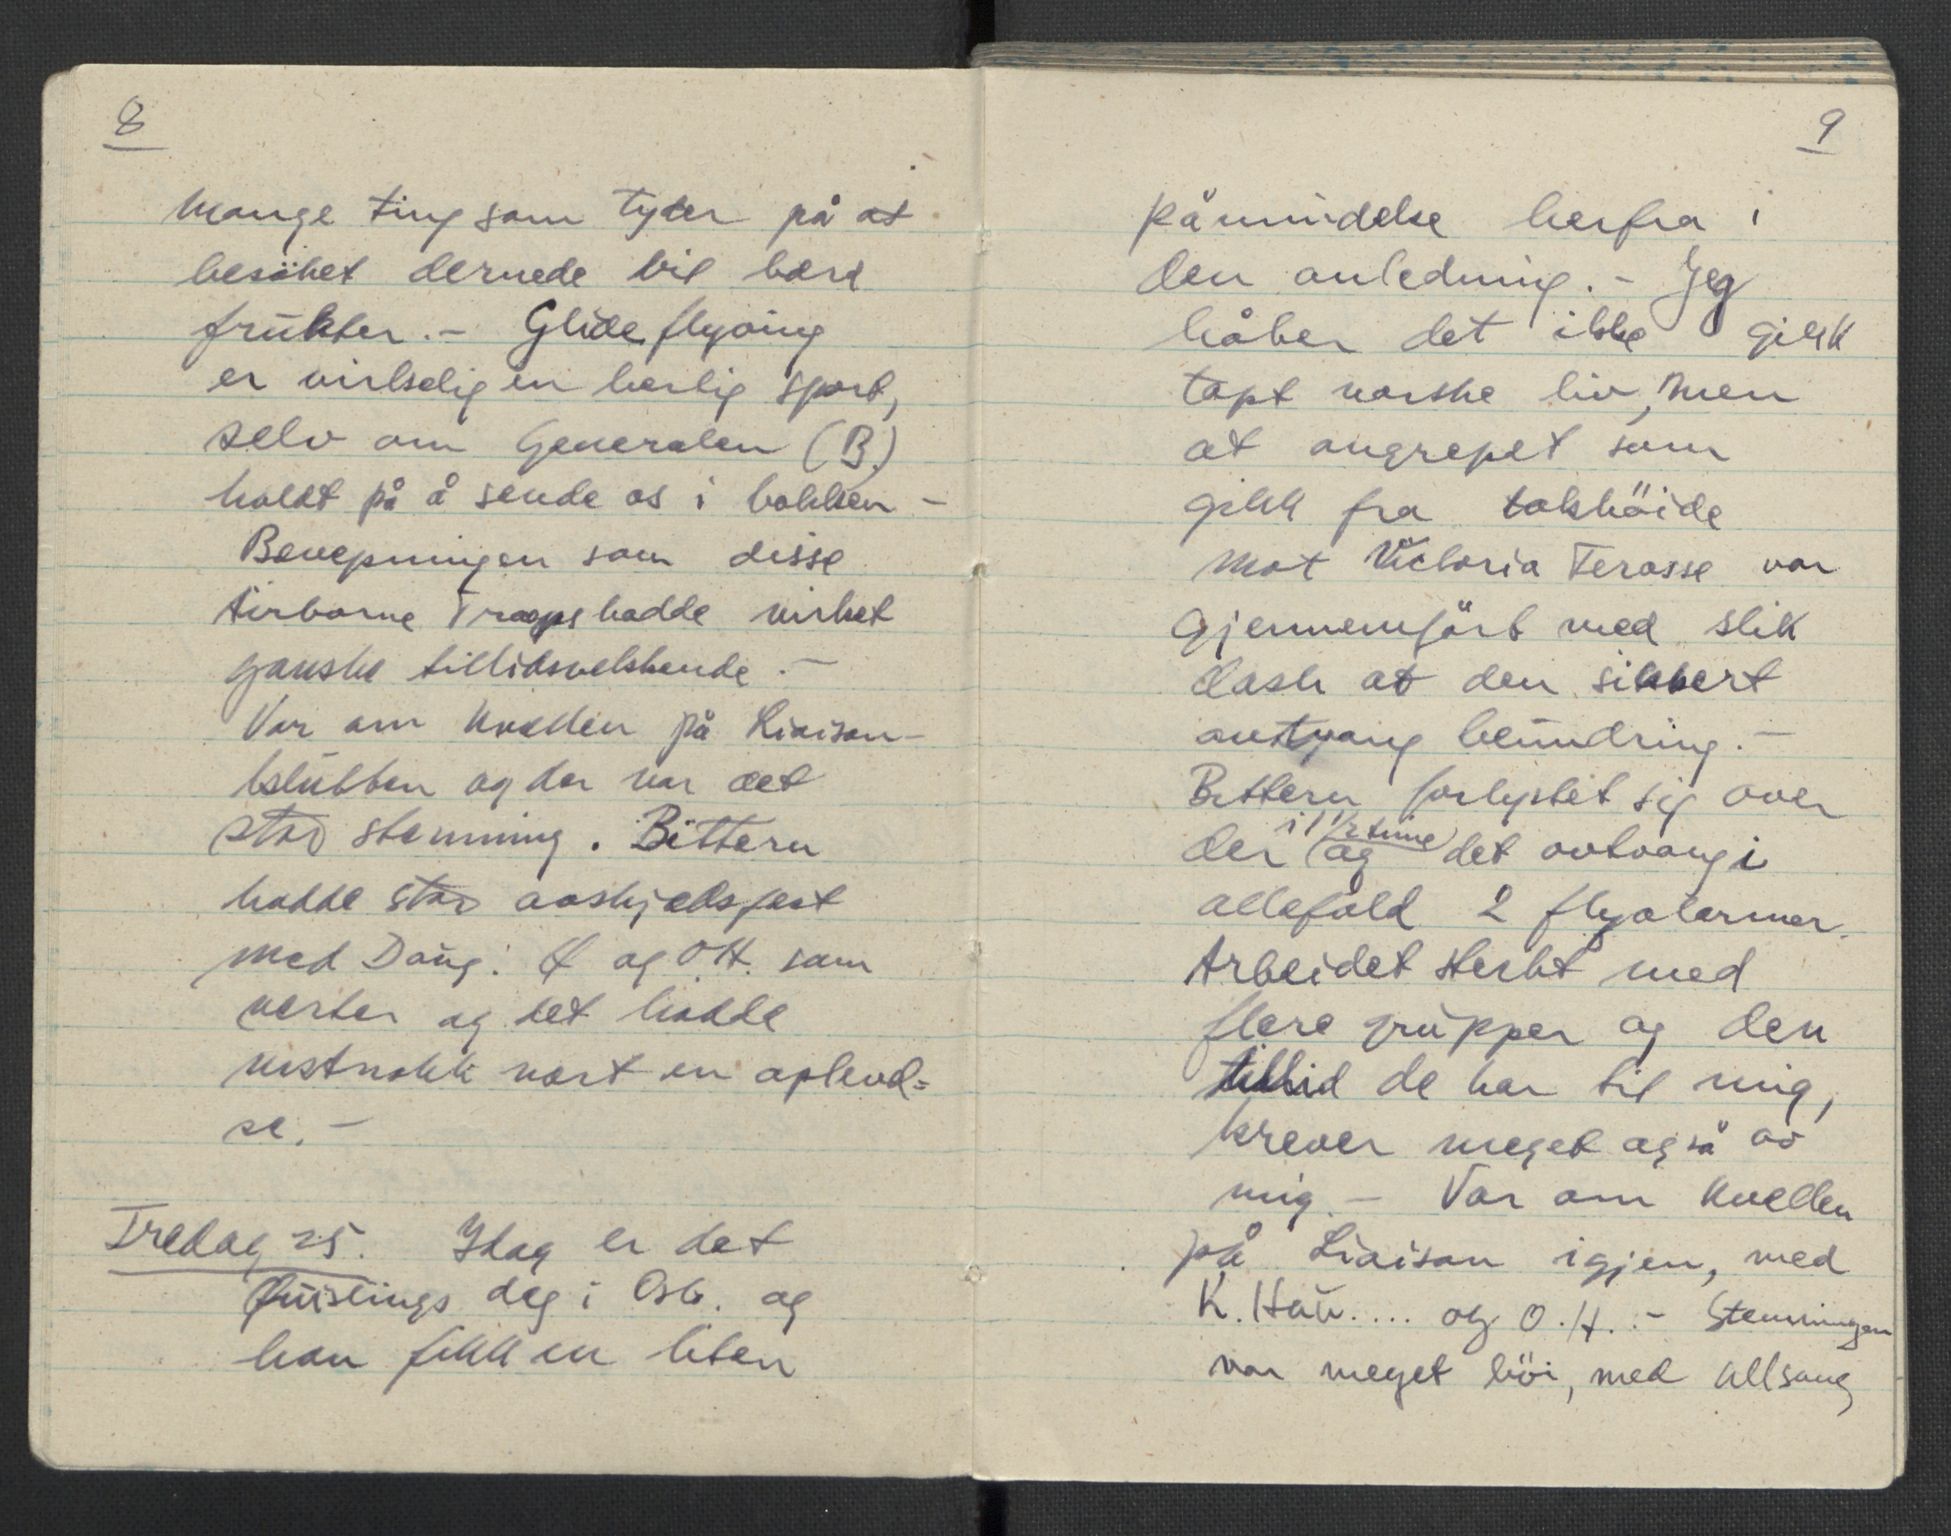 8
Mange ting som tyder på at
besöket dernede vil bære
frukter. - Glideflyoing
er virkselig en herlig sport,
selv om Generalen (B.)
holdt på å sende os i bakken -
Bevepningen som disse
Airborne Troops hadde virket
ganske tillidsvekkende. -
Var om kvellen på Liaison-
klubben og der var det
stor stemning. Bittern
hadde stor avskjedsfest
med Daug. Ø og O.H. som
verter og det hadde
nistnokk vært en oplevel=
se. -
Fredag 25. Idag er det
Quislings dag i Oslo. og
han fikk en liten
9
påmindelse herfra i
den anledning. - Jeg
håber det ikke gikk
tapt norske liv, men
at angrepet som
gikk fra takhöide
mot Victoria Terasse var
gjennemfört med slik
dash at den sikkert
avtvang beundring. -
Bittern forlystet sig over
der i 1 1/2 time og det avtvang i
allefald 2 flyalarmer.
Arbeidet sterkt med
flere grupper og den
tillid de har til mig,
krever meget også av
mig. - Var om kvellen
på Liaison igjen, med
K. Hau.... og O.H. - Stemningen
var meget höi, med Allsang